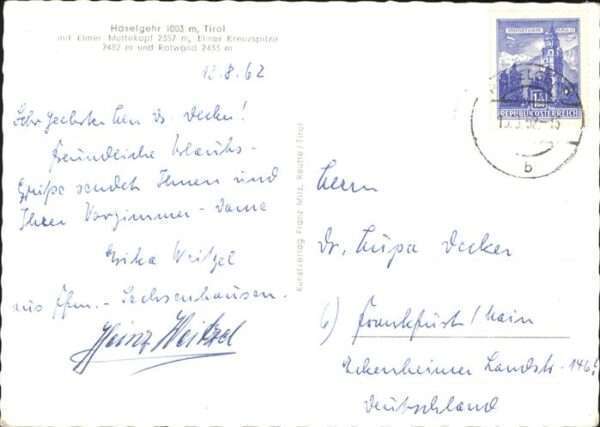 Häselgehr 1003 m, Tirol
mit Elmer Muttekopf 2357 m, Elmer Kreuzspitze
2482 m und Rotwand 2455 m
12.8.62
Sehr geehrter Herr Dr. Decker!
Freundliche Urlaubs-
grüße sendet Ihnen und
Ihrer Vorzimmer-Dame
Erika Weitzel
aus Ffm.-Sachsenhausen.
Heinz Weitzel
Kunstverlag Franz Milz, Reutte/Tirol
REPUBLIK ÖSTERREICH
b
Herrn
Dr. Decker
6) Frankfurt/Main
Eckenheimer Landstr. 146
Deutschland